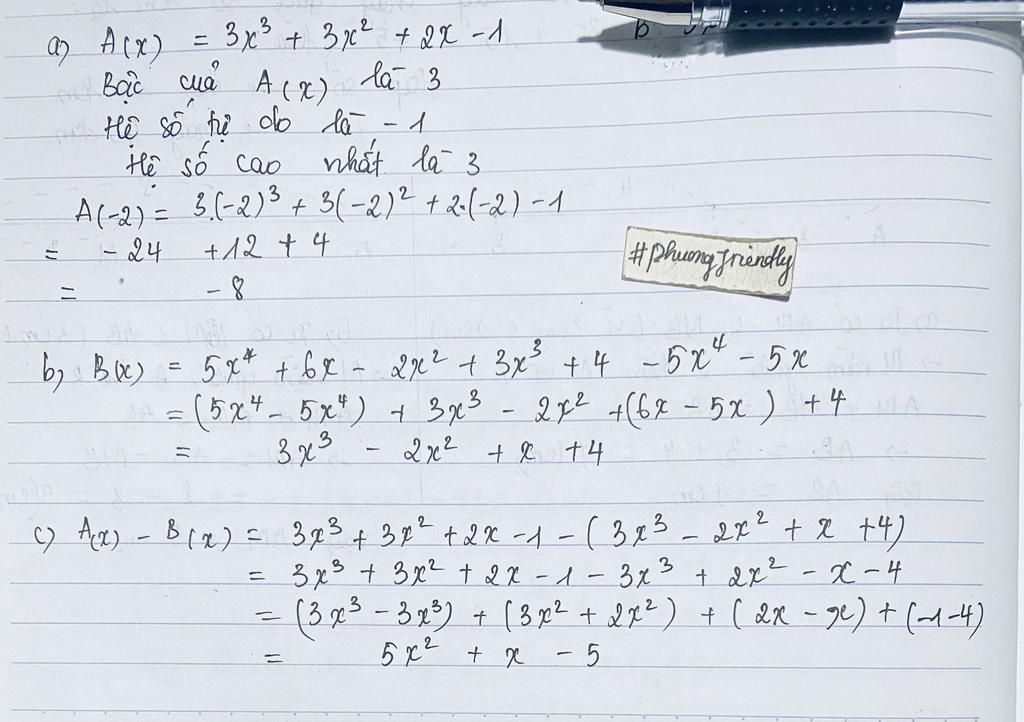 a) A(x) = 3x³ + 3x² + 2x - 1
Bậc cuả A(x) là 3
Hệ số tự do là - 1
Hệ số cao nhất là 3
A(-2) = 3.(-2)³ + 3(-2)² + 2.(-2) - 1
= - 24 + 12 + 4
= - 8
#phuongfriendly
b) B(x) = 5x⁴ + 6x - 2x² + 3x³ + 4 - 5x⁴ - 5x
= (5x⁴ - 5x⁴) + 3x³ - 2x² + (6x - 5x) + 4
= 3x³ - 2x² + x + 4
c) A(x) - B(x) = 3x³ + 3x² + 2x - 1 - (3x³ - 2x² + x + 4)
= 3x³ + 3x² + 2x - 1 - 3x³ + 2x² - x - 4
= (3x³ - 3x³) + (3x² + 2x²) + (2x - x) + (-1-4)
= 5x² + x - 5